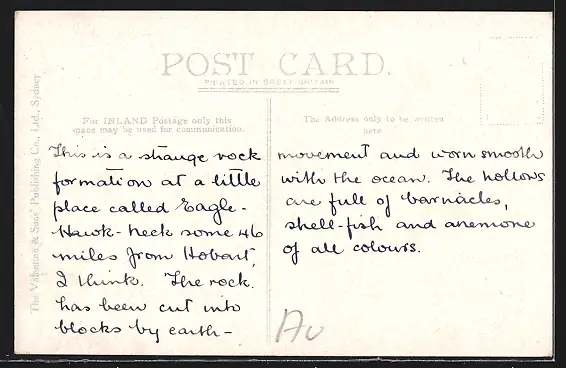 POST CARD.
PRINTED IN GREAT BRITAIN
The Valentine & Sons' Publishing Co., Ltd., Sydney
For INLAND Postage only this
space may be used for communication.
The Address only to be written
here
This is a strange rock
formation at a little
place called Eagle-
Hawk-neck some 46
miles from Hobart,
I think. The rock
has been cut into
blocks by earth-
movement and worn smooth
with the ocean. The hollows
are full of barnacles,
shell-fish and anemone
of all colours.
Au